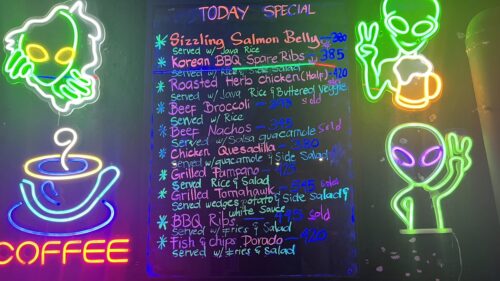 TODAY SPECIAL
* Sizzling Salmon Belly - 380
served w/ Java Rice
* Korean BBQ Spare Ribs - 385
served w/ Rice & Side Salad
* Roasted Herb chicken (Half) - 420
served w/ Java Rice & Buttered Veggie
* Beef Broccoli - 395 sold
served w/ Rice
* Beef Nachos - 385
served w/ Salsa guacamole sold
* Chicken Quesadilla - 380
served w/ guacamole & Side Salad
* Grilled Pampano
served Rice & Salad
* Grilled Tomahawk - 545 sold
served wedges potato & Side Salad &
white Sauce
* BBQ Ribs - 495 sold
served w/ fries & Salad
* Fish & chips Dorado - 420
served w/ fries & Salad
COFFEE